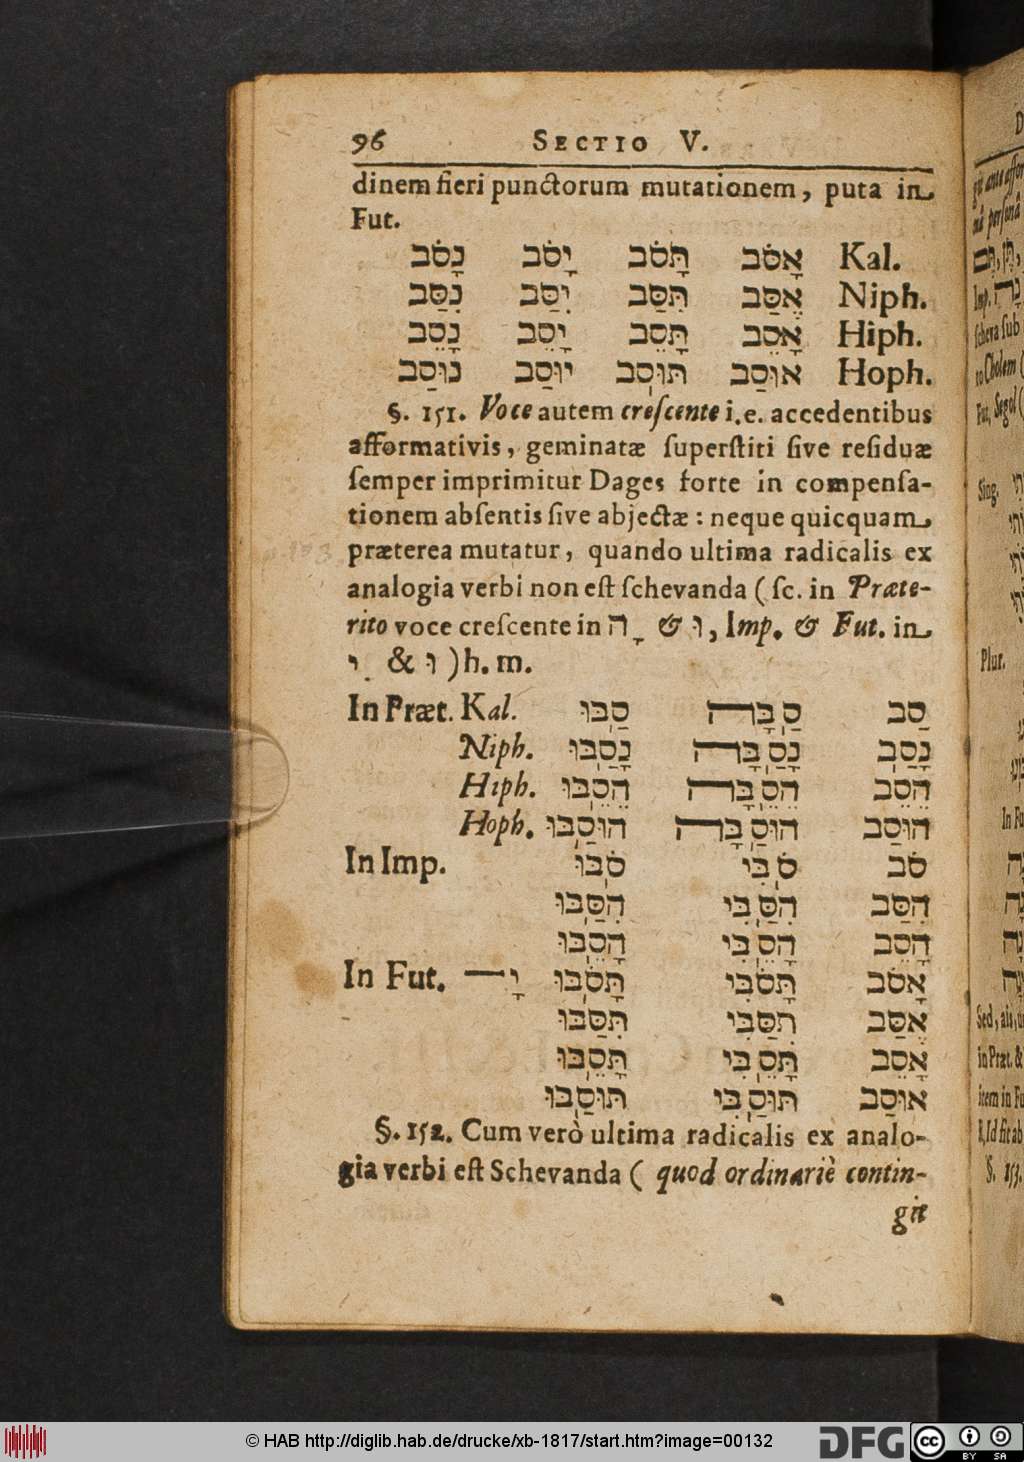 96 SECTIO V.
dinem fieri punctorum mutationem, puta in
Fut.
אָסֹב תָּסֹב יָסֹב נָסֹב Kal.
אֶסַּב תִּסַּב יִסַּב נִסַּב Niph.
אָסֵב תָּסֵב יָסֵב נָסֵב Hiph.
אוּסַב תּוּסַב יוּסַב נוּסַב Hoph.
§. 151. Voce autem creſcente i.e. accedentibus
afformativis, geminatæ ſuperſtiti ſive reſiduæ
ſemper imprimitur Dages forte in compenſa-
tionem abſentis ſive abjectæ: neque quicquam
præterea mutatur, quando ultima radicalis ex
analogia verbi non eſt ſchevanda (ſc. in Præte-
rito voce creſcente in ָה & וּ, Imp. & Fut. in
ִי & וּ) h. m.
In Præt. Kal. סַב סַבָּה סַבּוּ
Niph. נָסַב נָסַבָּה נָסַבּוּ
Hiph. הֵסֵב הֵסֵבָּה הֵסֵבּוּ
Hoph. הוּסַב הוּסַבָּה הוּסַבּוּ
In Imp. סֹב סֹבִּי סֹבּוּ
הִסַּב הִסַּבִּי הִסַּבּוּ
הָסֵב הָסֵבִּי הָסֵבּוּ
In Fut. אָסֹב תָּסֹבִּי תָּסֹבּוּ יָ—
אֶסַּב תִּסַּבִּי תִּסַּבּוּ
אָסֵב תָּסֵבִּי תָּסֵבּוּ
אוּסַב תּוּסַבִּי תּוּסַבּוּ
§. 152. Cum verò ultima radicalis ex analo-
gia verbi eſt Schevanda (quod ordinariè contin-
git
Imp.
ſcheva ſub
Cholem
Fut. Segol
Sing.
Plur.
In Fu
Sed, ali
in Præt. &
item in Fu
§. 153.
© HAB http://diglib.hab.de/drucke/xb-1817/start.htm?image=00132
DFG
cc BY SA